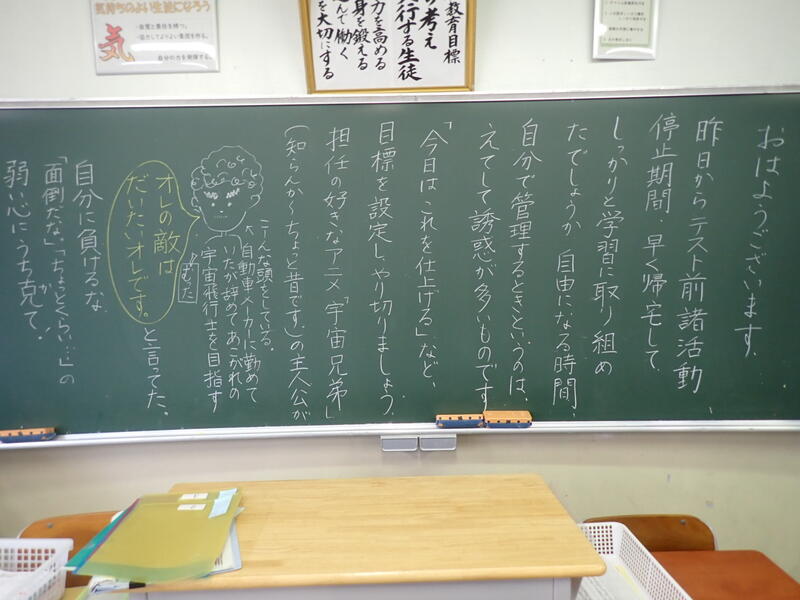 気持ちのよい生徒になろう
気
・自覚と責任を持つ。
・協力してよりよい集団を作る。
自分の力を発揮する。
教育目標
考え
行する生徒
力を高める
身を鍛える
んで働く
を大切にする
おはようございます。
昨日からテスト前諸活動
停止期間。早く帰宅して、
しっかりと学習に取り組め
たでしょうか。自由になる時間、
自分で管理するときというのは、
えてして誘惑が多いものです。
「今日はこれを仕上げる」など、
目標を設定し、やり切りましょう。
担任の好きなアニメ「宇宙兄弟」
(知らんか〜ちょっと昔です)の主人公が
こーんな頭をしている。
自動車メーカーに勤めて
いたが辞めてあこがれの
宇宙飛行士を目指す
むった
オレの敵は
だいたいオレです。
と言ってた。
自分に負けるな
「面倒だな」「ちょっとくらい…」の
弱い心にうち克て!